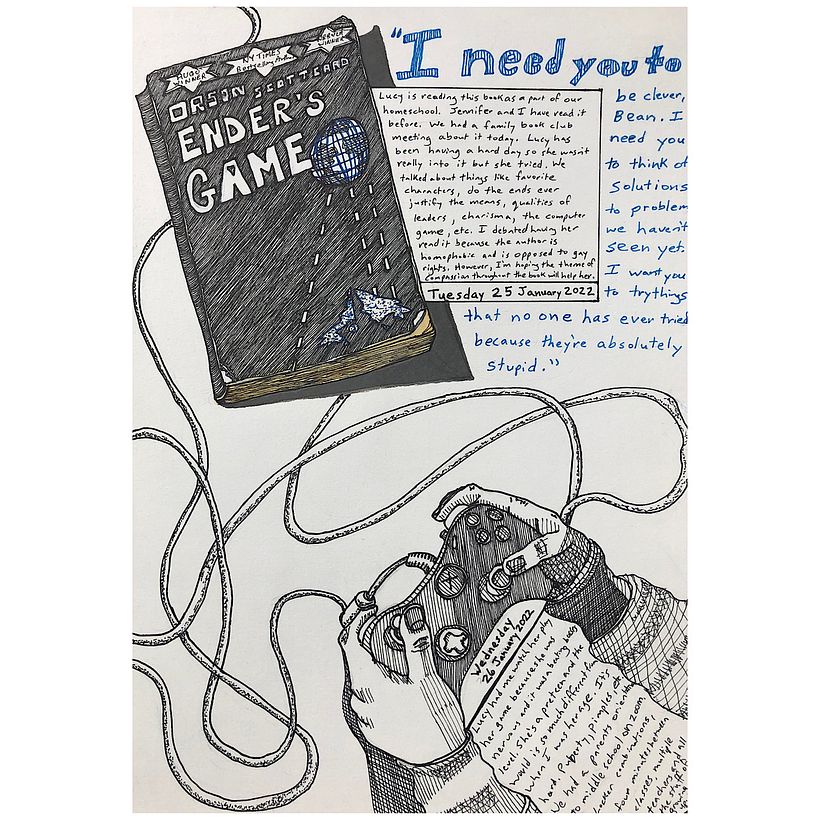 HUGO
WINNER
NY TIMES
Bestselling Author
NEBULA
WINNER
ORSON SCOTT CARD
ENDER'S
GAME
"I need you to
be clever,
Bean. I
need you
to think of
solutions
to problem
we haven't
seen yet.
I want you
to try things
that no one has ever tried
because they're absolutely
stupid."
Lucy is reading this book as a part of our
homeschool. Jennifer and I have read it
before. We had a family book club
meeting about it today. Lucy has
been having a hard day so she wasn't
really into it but she tried. We
talked about things like favorite
characters, do the ends ever
justify the means, qualities of
leaders, charisma, the computer
game, etc. I debated having her
read it because the author is
homophobic and is opposed to gay
rights. However, I'm hoping the theme of
compassion throughout the book will help her.
Tuesday 25 January 2022
Wednesday
26 January 2022
Lucy had me watch her play
her game because she was
nervous and it was a
level. She's a preteen and the
world is so much different from
when I was her age. It's
hard. Puberty, pimples, etc
We had a parents orientation
to middle school on Zoom
locker combinations,
four minutes between
classes, multiple
teachers and all
the stuff of